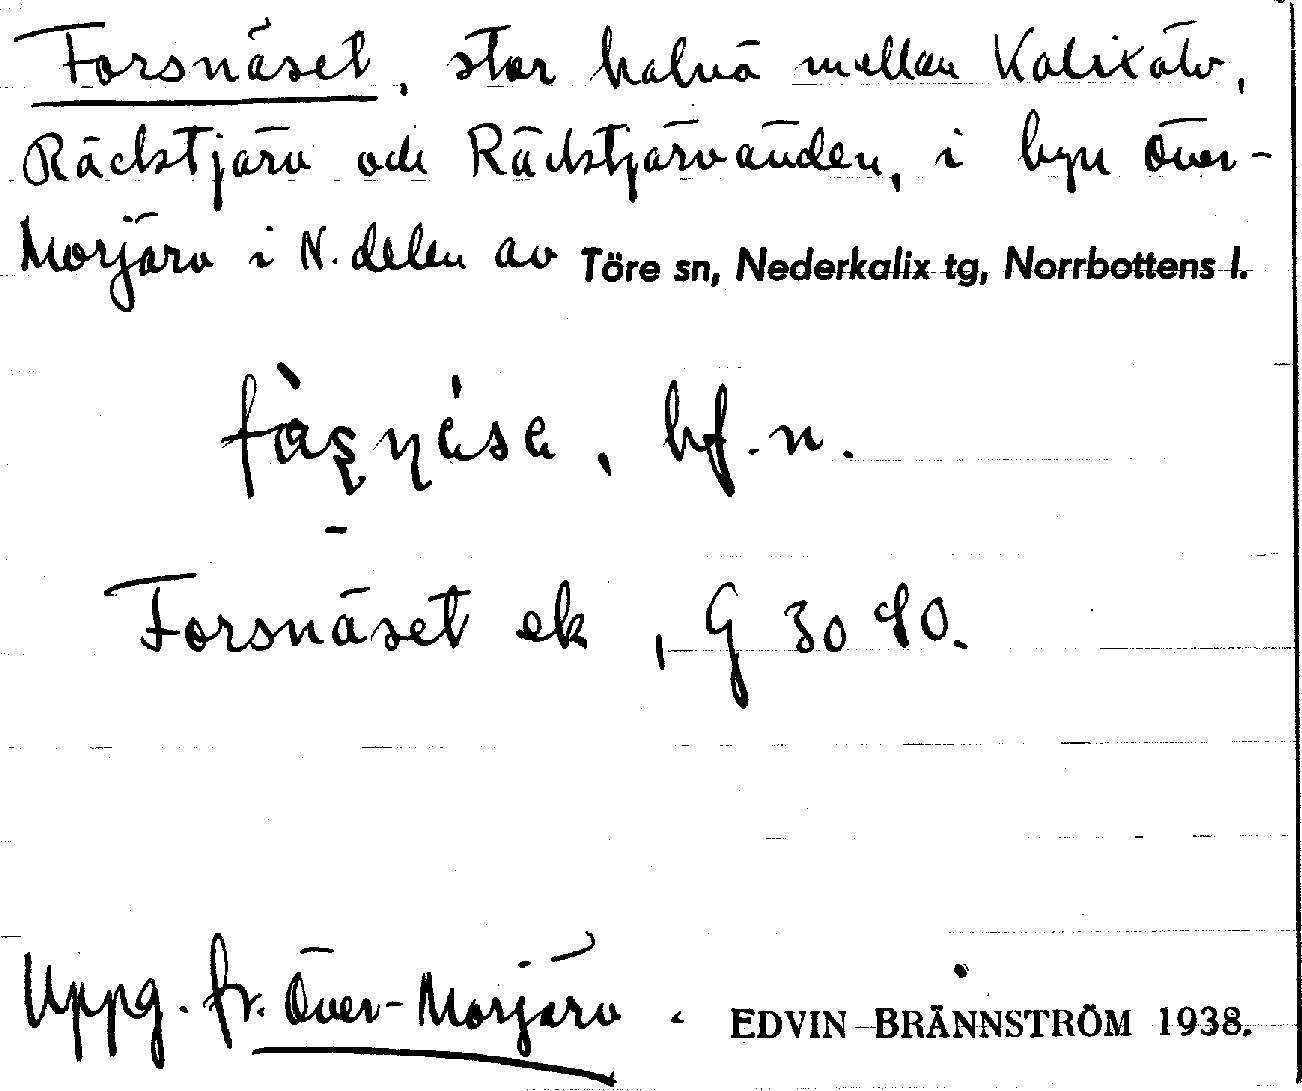 Forsnäset, stor halvö mellan Kalixälv,
Räcktjärv och Räcktjärvänden, i byn Över-
Morjärv i N. delen av Töre sn, Nederkalix tg, Norrbottens l.
bf. n.
Forsnäset ek, G 30 40.
Uppg. fr. Över-Morjärv. EDVIN BRÄNNSTRÖM 1938.